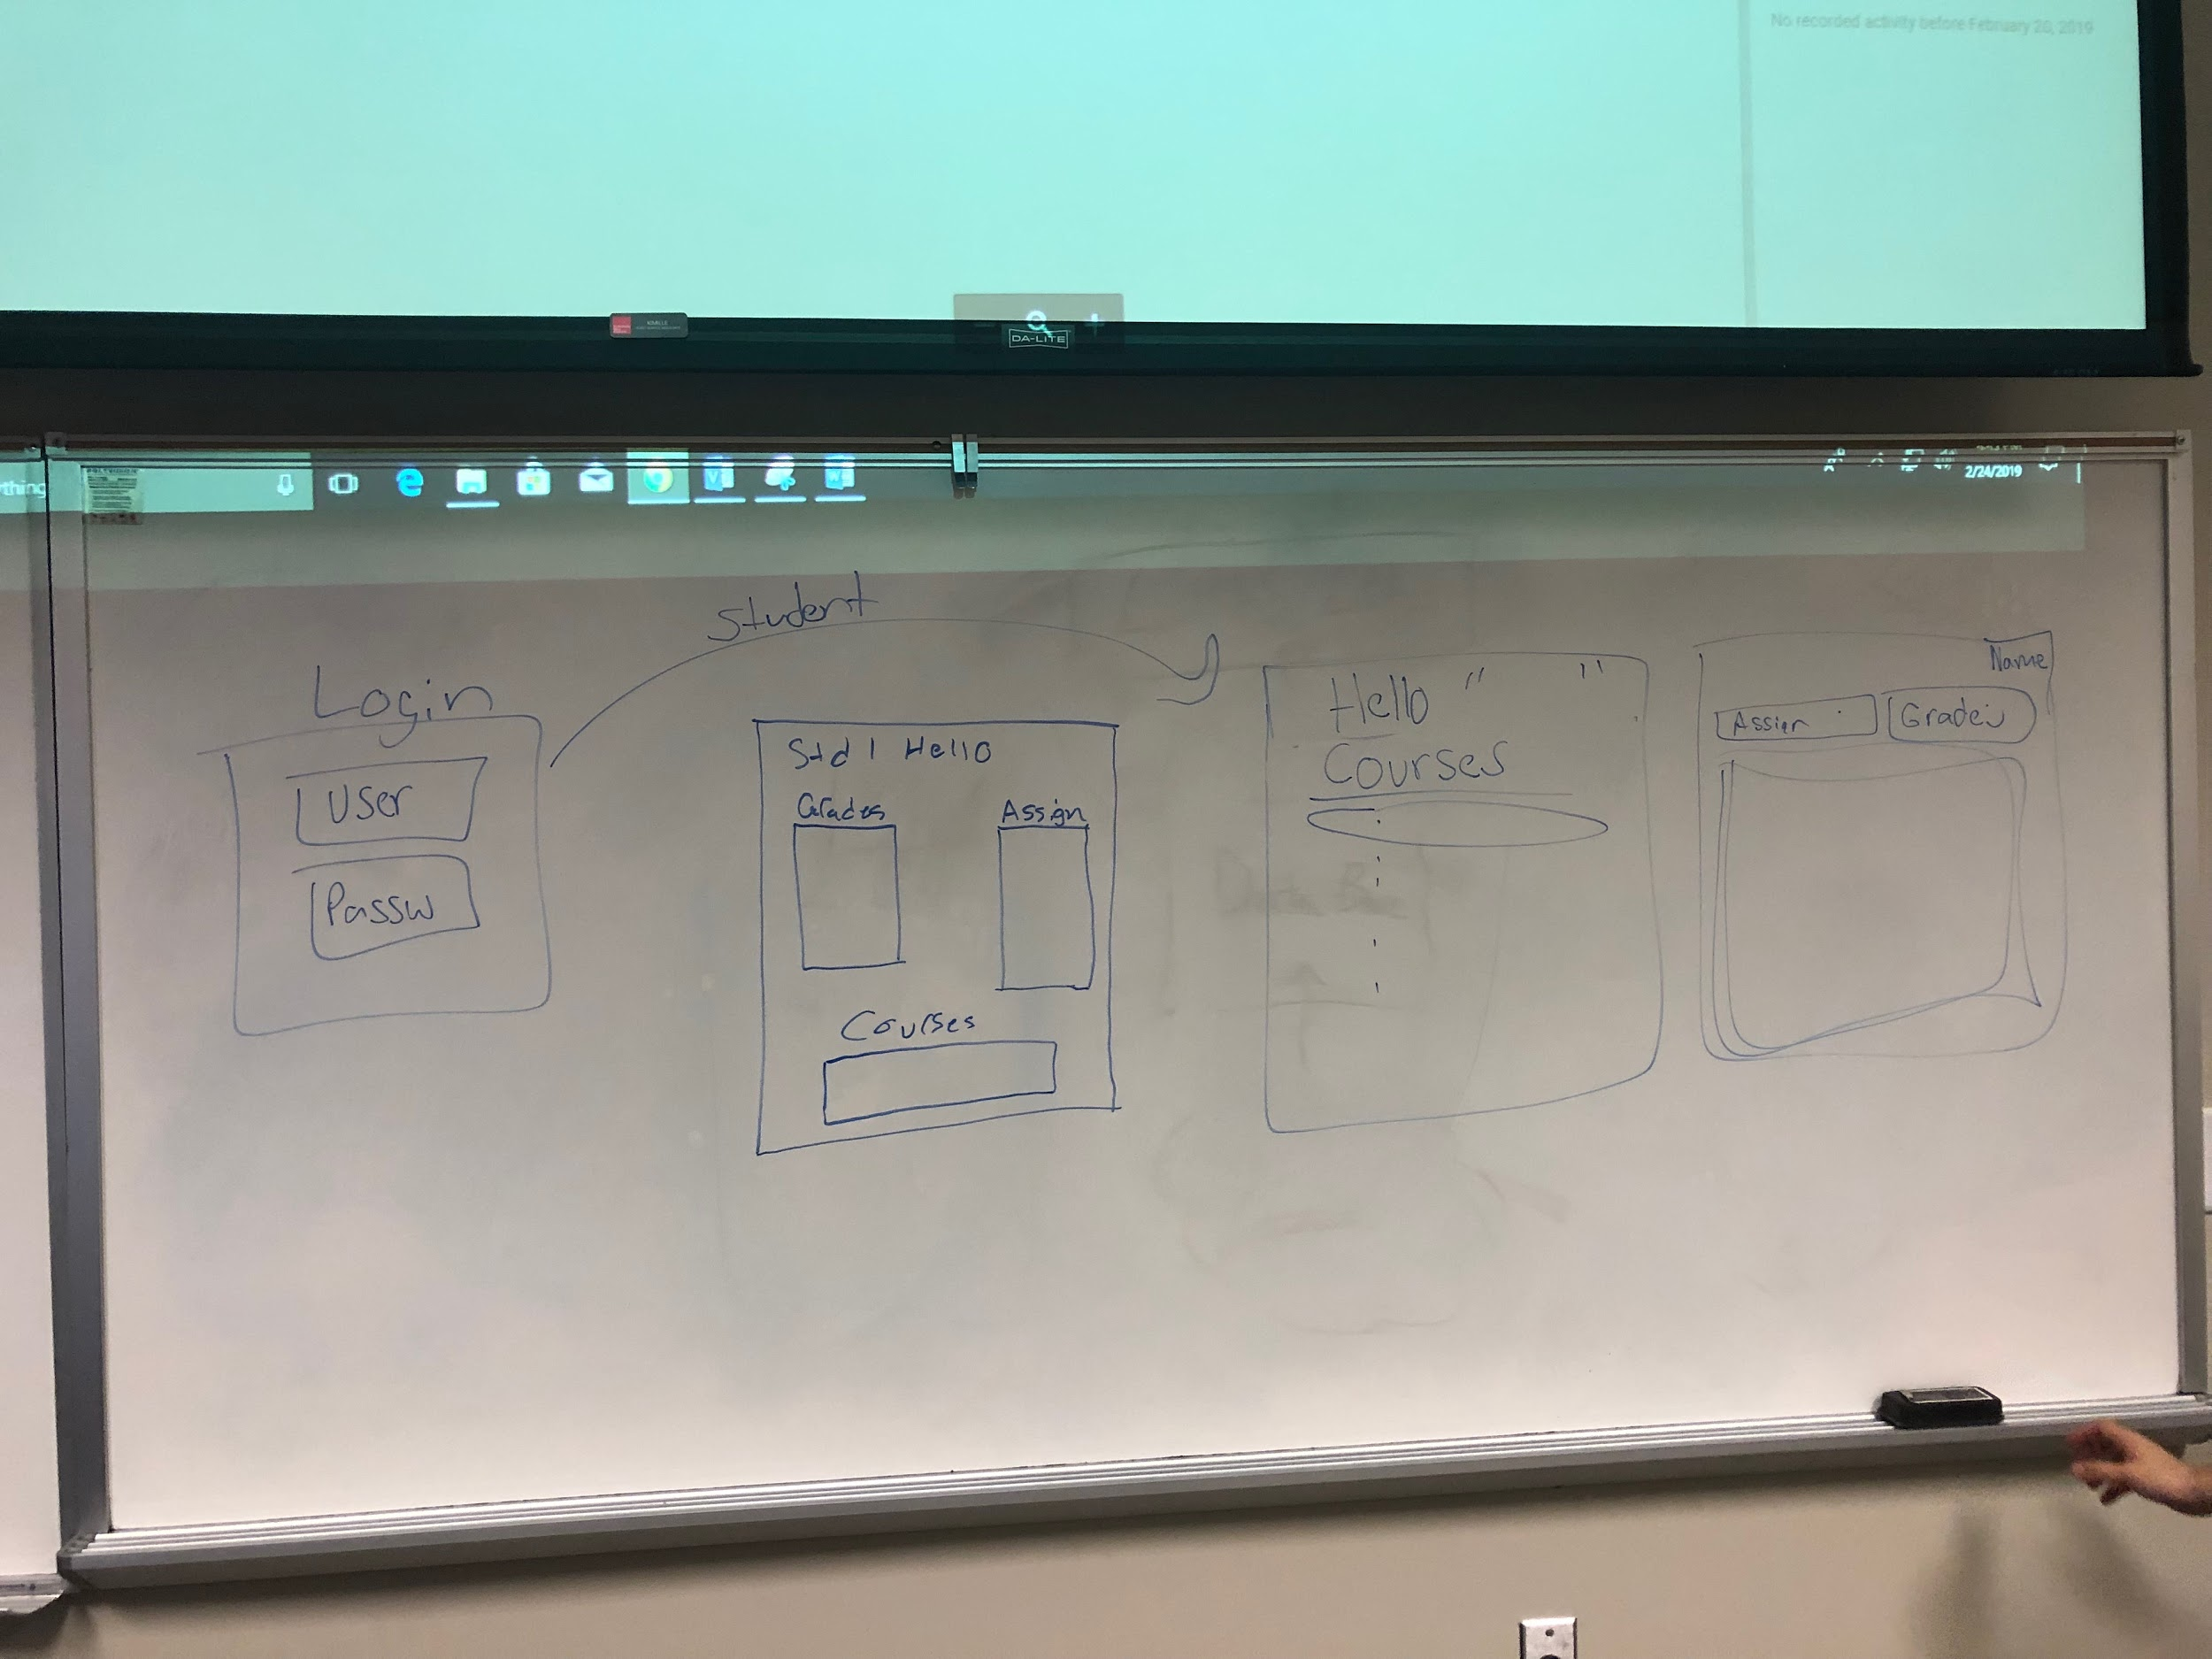 No recorded activity before February 20, 2019
DA-LITE
thing
2/24/2019
Student
Login
User
Passw
Std 1 Hello
Grades
Assign
Courses
Hello "     "
Courses
Name
Assign
Grades
Data Base